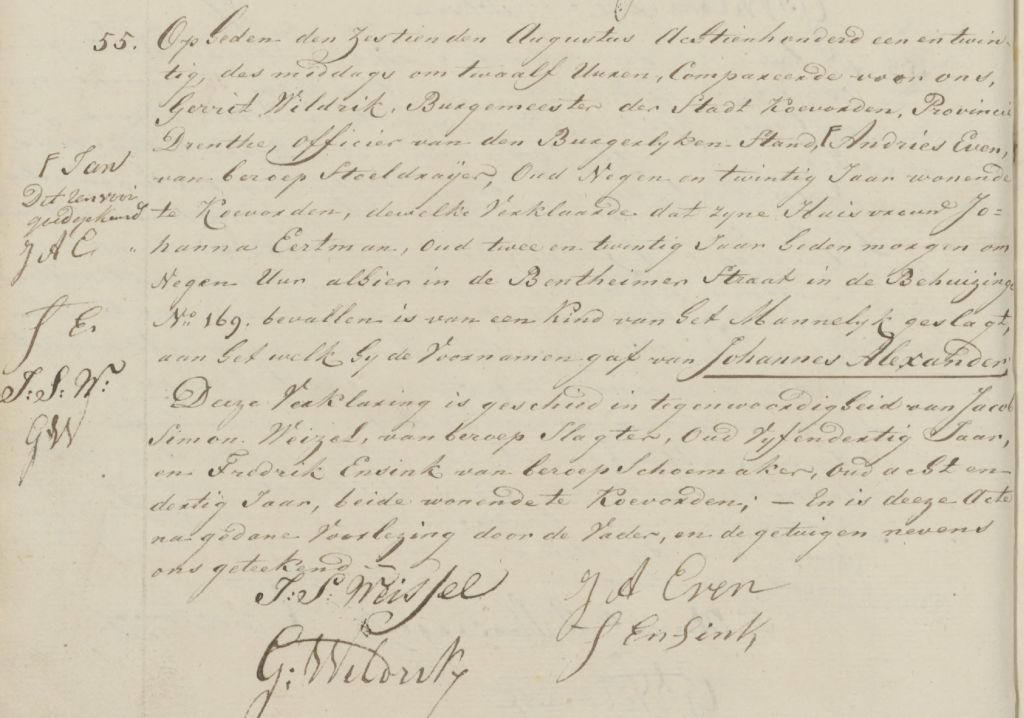 55. Op heden den Zestienden Augustus Achtienhonderd een en twin-
tig, des middags om twaalf Uuren, Compareerde voor ons,
Gerrit Wildrik, Burgemeester der Stadt Koevorden, Provincie
Drenthe, officier van den Burgerlyken Stand, ┌ Andries Even,
van beroep Stoeldrayer, Oud Negen en twintig Jaar wonende
te Koevorden, dewelke Verklaarde dat zyne Huisvrouw Jo=
hanna Eertman, oud twee en twintig Jaar heden morgen om
Negen Uur alhier in de Bentheimer Straat in de Behuizinge
No. 169. bevallen is van een Kind van het Mannelyk geslagt,
aan het welk hy de Voornamen gaf van Johannes Alexander
Deeze Verklaring is geschied in tegenwoordigheid van Jacob
Simon Weizel, van beroep Slagter, Oud Vyfendertig Jaar,
en Fredrik Ensink van beroep Schoemaker, oud acht en
dertig Jaar, beide wonende te Koevorden; — En is deeze Acte
na gedane Voorlezing door de Vader, en de getuigen nevens
ons geteekend
┌ Jan
Dit renvooi
goedgekeurd
J A E
F E.
J: S: W:
GW
J: S: Weissel
J A Even
F Ensink
G: Wildrik